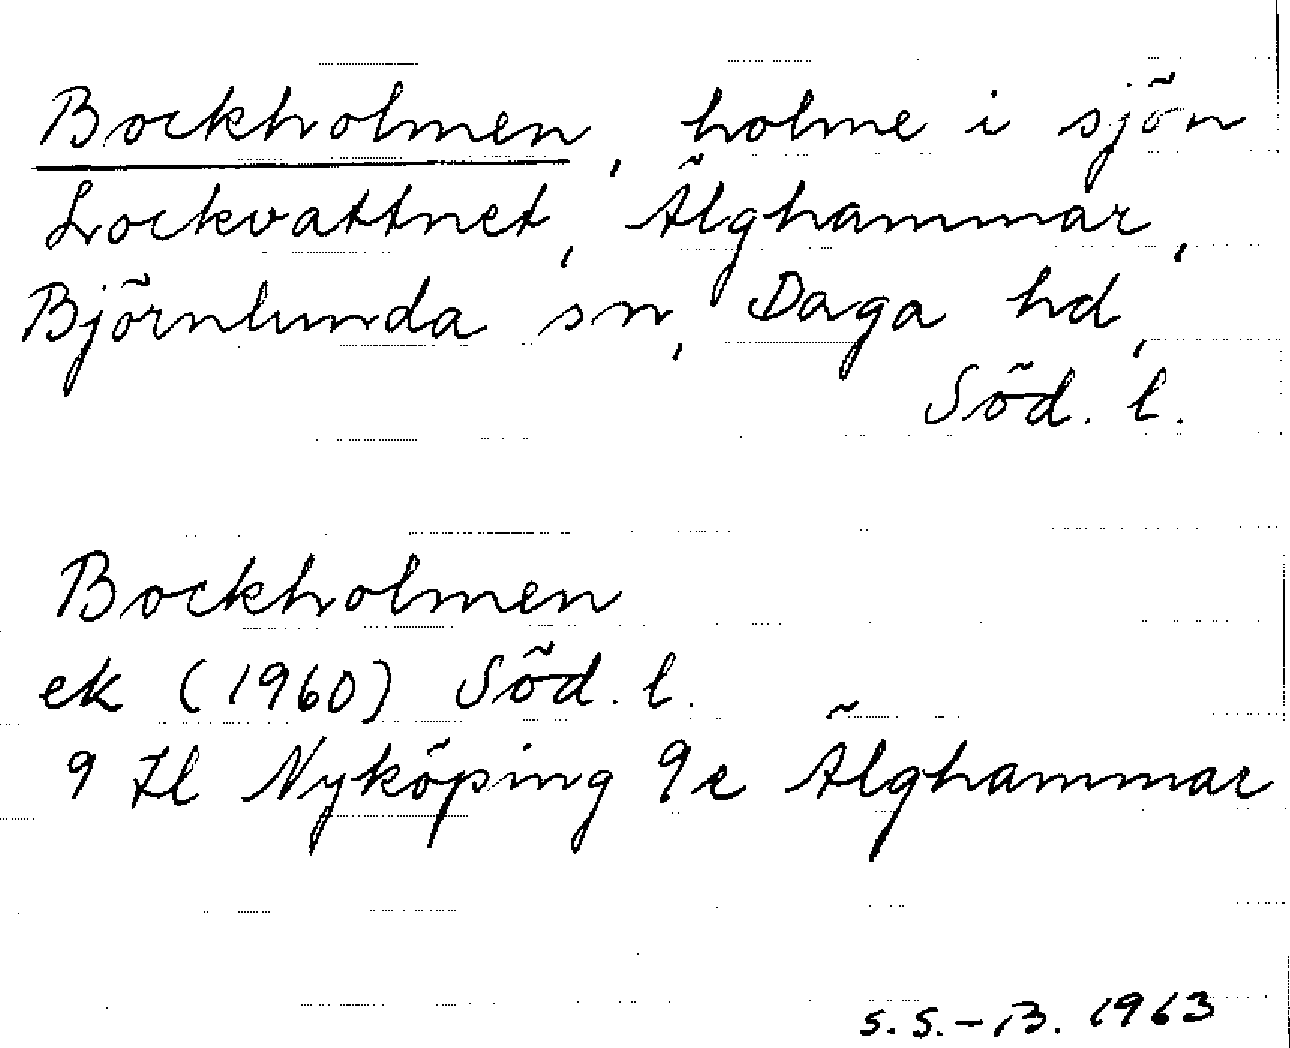 Bockholmen, holme i sjön
Lockvattnet, Älghammar,
Björnlunda sn, Daga hd,
Söd. l.
Bockholmen
ek (1960) Söd. l.
9 Il Nyköping 9e Älghammar
S.S.-B. 1963